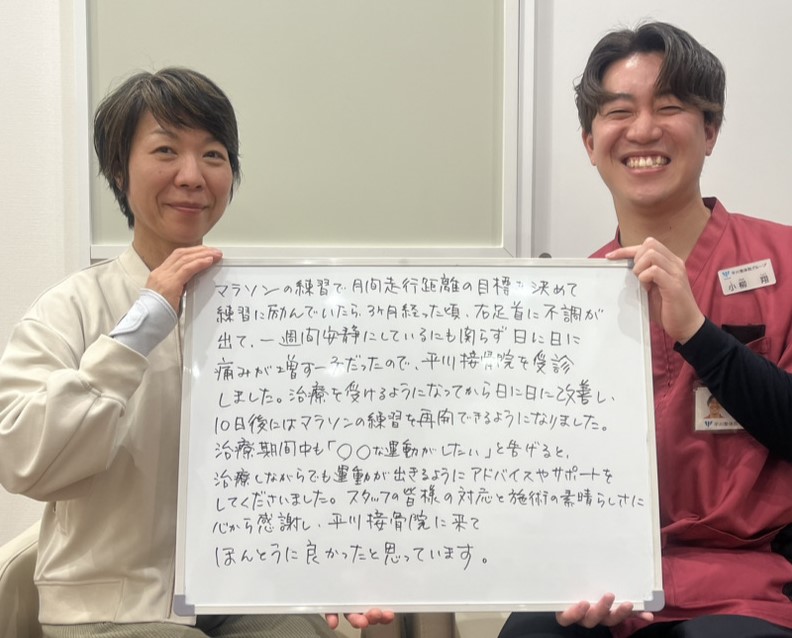 マラソンの練習で月間走行距離の目標を決めて
練習に励んでいたら、3ヶ月経った頃、右足首に不調が
出て、一週間安静にしているにも関らず日に日に
痛みが増す一方だったので、平川接骨院を受診
しました。治療を受けるようになってから日に日に改善し、
10日後にはマラソンの練習を再開できるようになりました。
治療期間中も「〇〇な運動がしたい」と告げると、
治療しながらでも運動が出きるようにアドバイスやサポートを
してくださいました。スタッフの皆様の対応と施術の素晴らしさに
心から感謝し、平川接骨院に来て
ほんとうに良かったと思っています。
平川接骨院グループ
小柳 翔